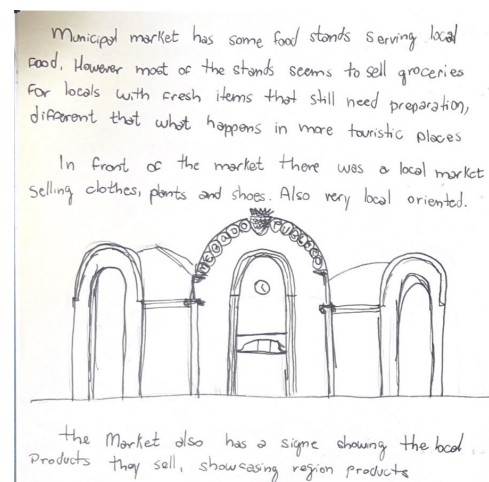 Municipal market has some food stands serving local
food. However most of the stands seems to sell groceries
for locals with fresh items that still need preparation,
different that what happens in more touristic places
In front of the market there was a local market
selling clothes, plants and shoes. Also very local oriented.
MERCADO PUBLICO
the Market also has a signe showing the local
Products they sell, showcasing region products